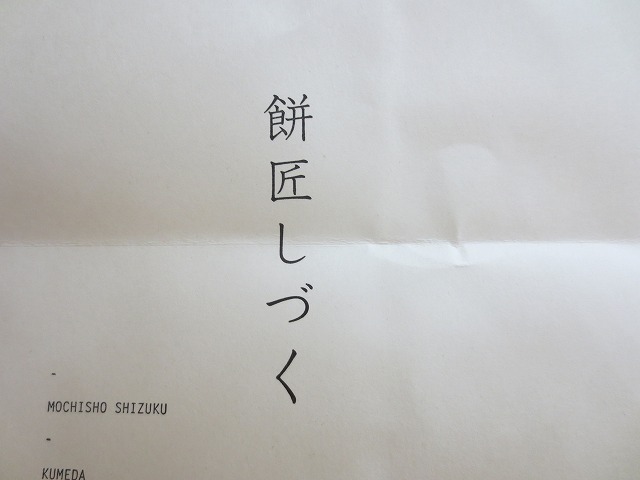 餅匠しづく
-
MOCHISHO SHIZUKU
-
KUMEDA